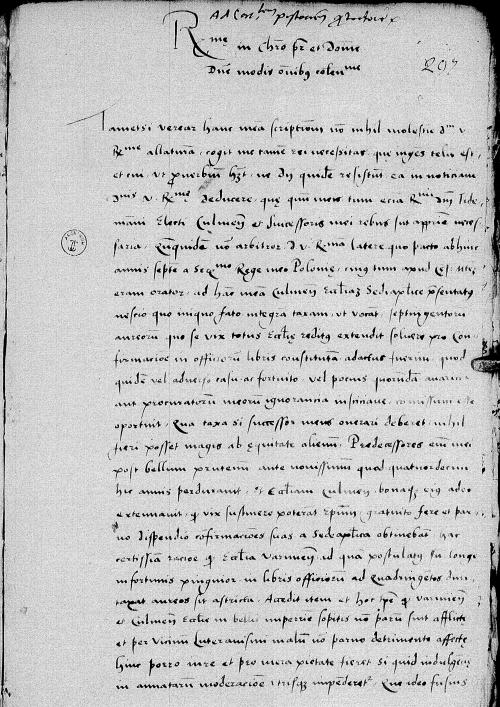 Ad Car^lem protectore
R^me in Chro pr et Dome
Dne modis oibus colen^me
297
Tametsi vereor hanc mea scriptiom no nihil molestie d^m v
R^me allatura, cogit me tame rei necessitas, que inges telu est
et cui, ut proverbiu hz, ne Dij quide resistut, ea in noticiam
D^nis v. R^me deducere, que quu meis tum ecia R^mi Dni Tide
manni Electi Culmen et successoris mei rebus sut apprie neces
saria. Equidem no arbitror D v R^ma latere quo pacto abhinc
annis septe a Ser^mo Rege meo Polonie, cuius tum apud Ces.
eram orator, ad hac mea Culmen Eccliaz Sedi aplice presentatus
nescio quo iniquo fato integra taxam, ut vocat, septingentoru
aureoru quo se vix totus Ecclie reditus extendit solvere pro con
firmacioe in officioru libris constituta adactus fuerim, quod
quide vel adverso casu ac fortuito, vel pocius quorunda avaricia
aut procuratoru meoru ignorancia insciciave, comissum esse
oportuit. Qua taxa si successor meus onerari deberet, nihil
fieri posset magis ab equitate alienum. Predecessores em mei
post bellum prutenu ante novissimum quod quatuordecim
hic annis perduravit, et Eccliam Culmen, bonaq eius adeo
extenuavit, q vix sustinere poterat Epum, gratuito fere et par
vo dispendio confirmacioes suas a Sede aplica obtinebat, hac
certissia racioe q Ecclia Varmien, ad qua postulatus su longe
in fortunis pinguior, in libris officioru ad quadringetos dum
taxat aureos sit astricta. Accedit item et hoc tpe q Varmien
et Culmen Ecclie in bellis imperrie sopitis no paru sint afflicte
et per vicinu Luteranismi malu no parvo detrimento affecte
hinc porro iure et pro mera pietate fieret si quid indulgencie
in annataru moderacioe utrisq impederetur. Que ideo fusius